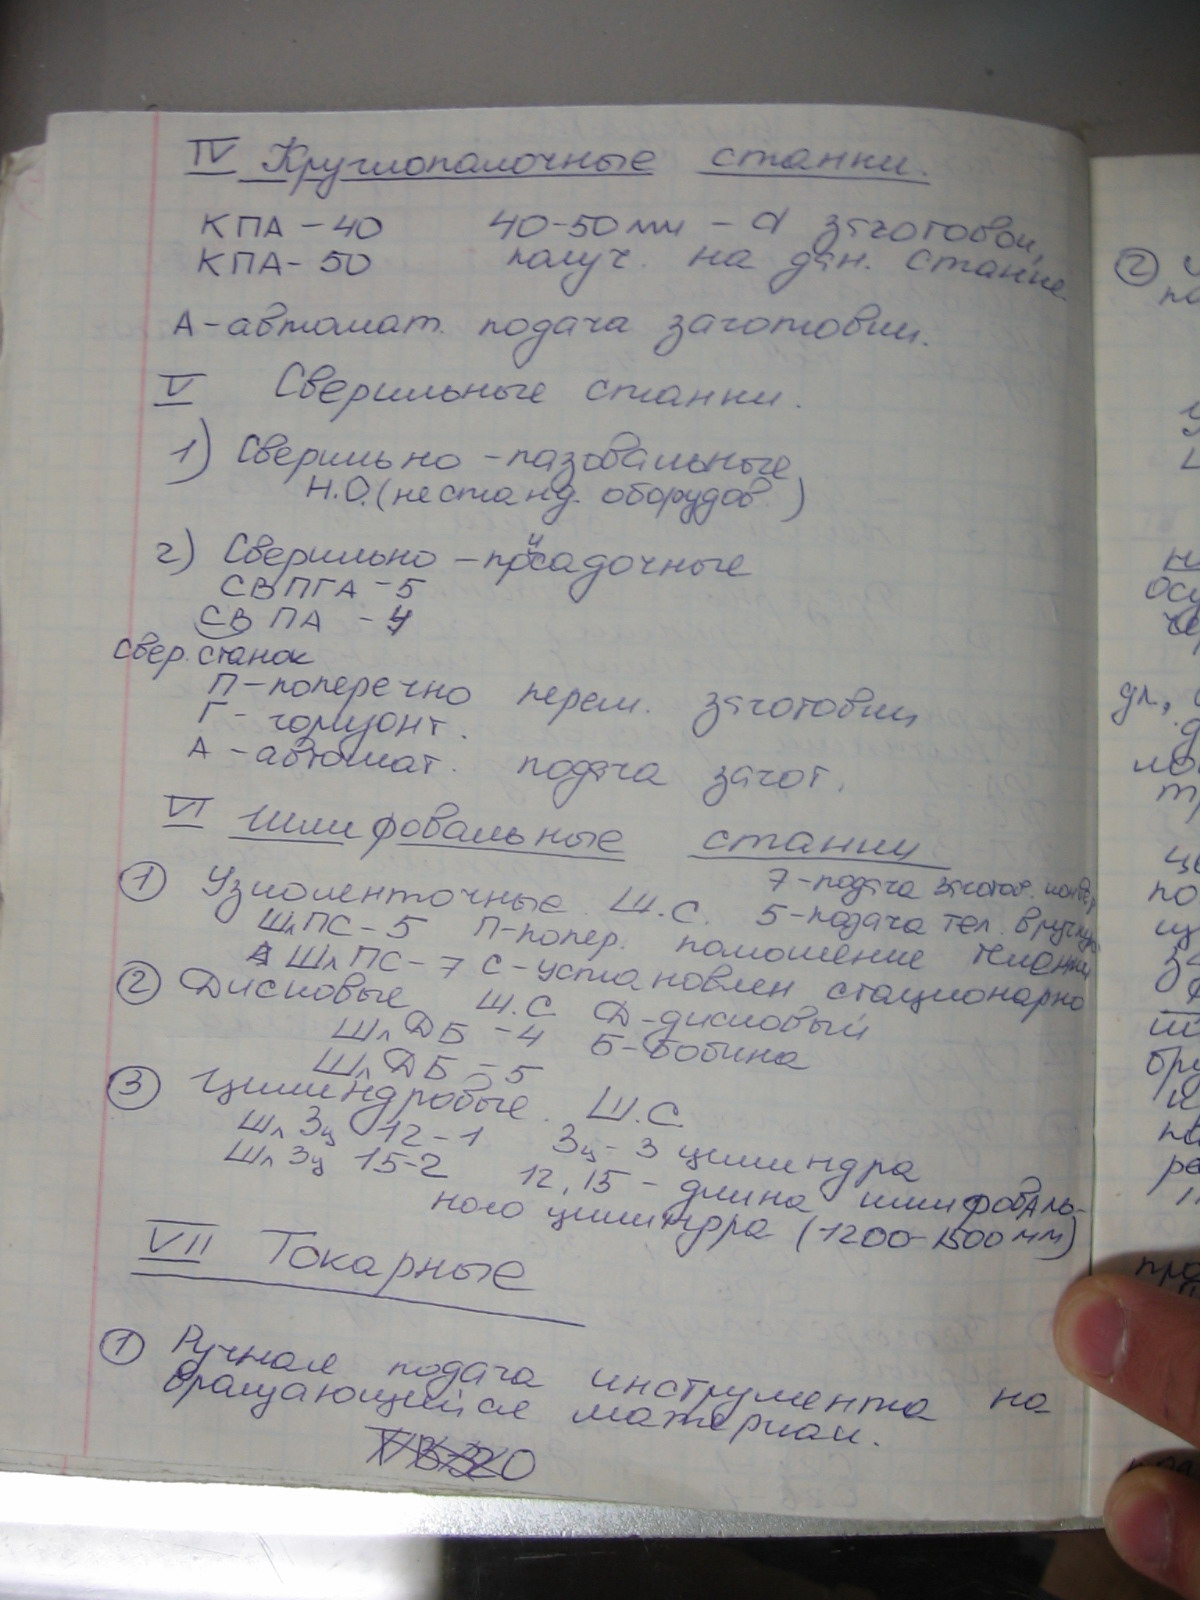 IV Круглопалочные станки.
КПА-40 40-50 мм - d заготовки,
КПА-50 получ. на дан. станке
А-автомат. подача заготовки.
V Сверильные станки.
1) Сверильно-пазовальные
Н.О. (нестанд. оборудов.)
2) Сверильно-присадочные
СВПГА-5
СВПА-4
Свер. станок
П-поперечно перем. заготовки
Г-горизонт.
А-автомат. подача загот.
VI Шлифовальные станки
① Узколенточные Ш.С.
7-подача заготов.
5-подача тел. вручную
ШлПС-5 П-попер.
ШлПС-7 С-установлен стационарно
② Дисковые Ш.С. Д-дисковый
ШлДБ-4 Б-бобина
ШлДБ-5
③ Цилиндровые Ш.С.
Шл3ц 12-1 3ц-3 цилиндра
Шл3ц 15-2 12,15-длина шлифоваль-
ного цилиндра (1200-1500мм)
VII Токарные
① Ручная подача инструмента на
вращающийся материал.
②